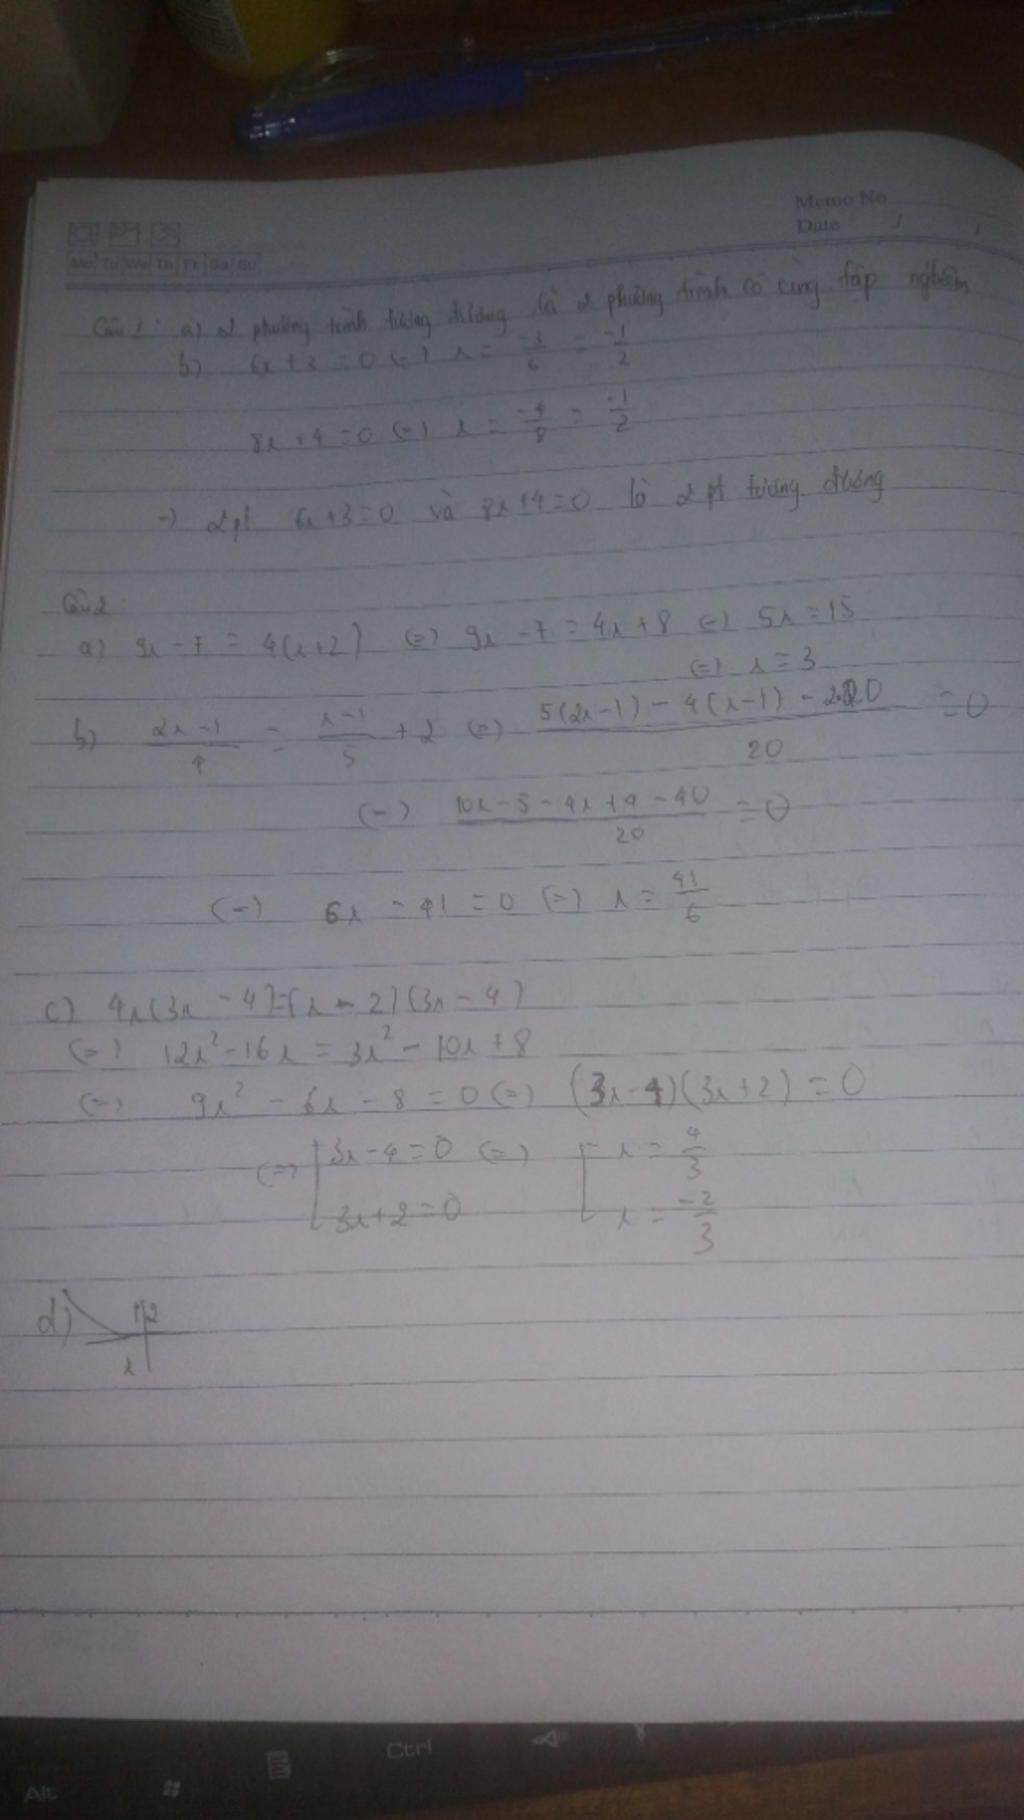 Memo No
Date / /
Mo Tu We Th Fr Sa Su
Câu 1: a) 2 phương trình tương đương là 2 phương trình có cùng tập nghiệm
b) 6x + 3 = 0 (=) x = -3/6 = -1/2
8x + 4 = 0 (=) x = -4/8 = -1/2
-) 2 pt 6x+3=0 và 8x+4=0 là 2 pt tương đương
Câu 2
a) 9x - 7 = 4(x+2) (=) 9x - 7 = 4x + 8 (=) 5x = 15
(=) x = 3
b) 2x-1/4 = x-1/5 + 2 (=) 5(2x-1) - 4(x-1) - 2.20/20 = 0
(=) 10x - 5 - 4x + 4 - 40/20 = 0
(=) 6x - 41 = 0 (=) x = 41/6
c) 4x(3x - 4) = (x - 2)(3x - 4)
(=) 12x² - 16x = 3x² - 10x + 8
(=) 9x² - 6x - 8 = 0 (=) (3x-4)(3x+2) = 0
(=) [3x - 4 = 0 (=) [x = 4/3
3x + 2 = 0 x = -2/3
d)
Ctrl
Alt